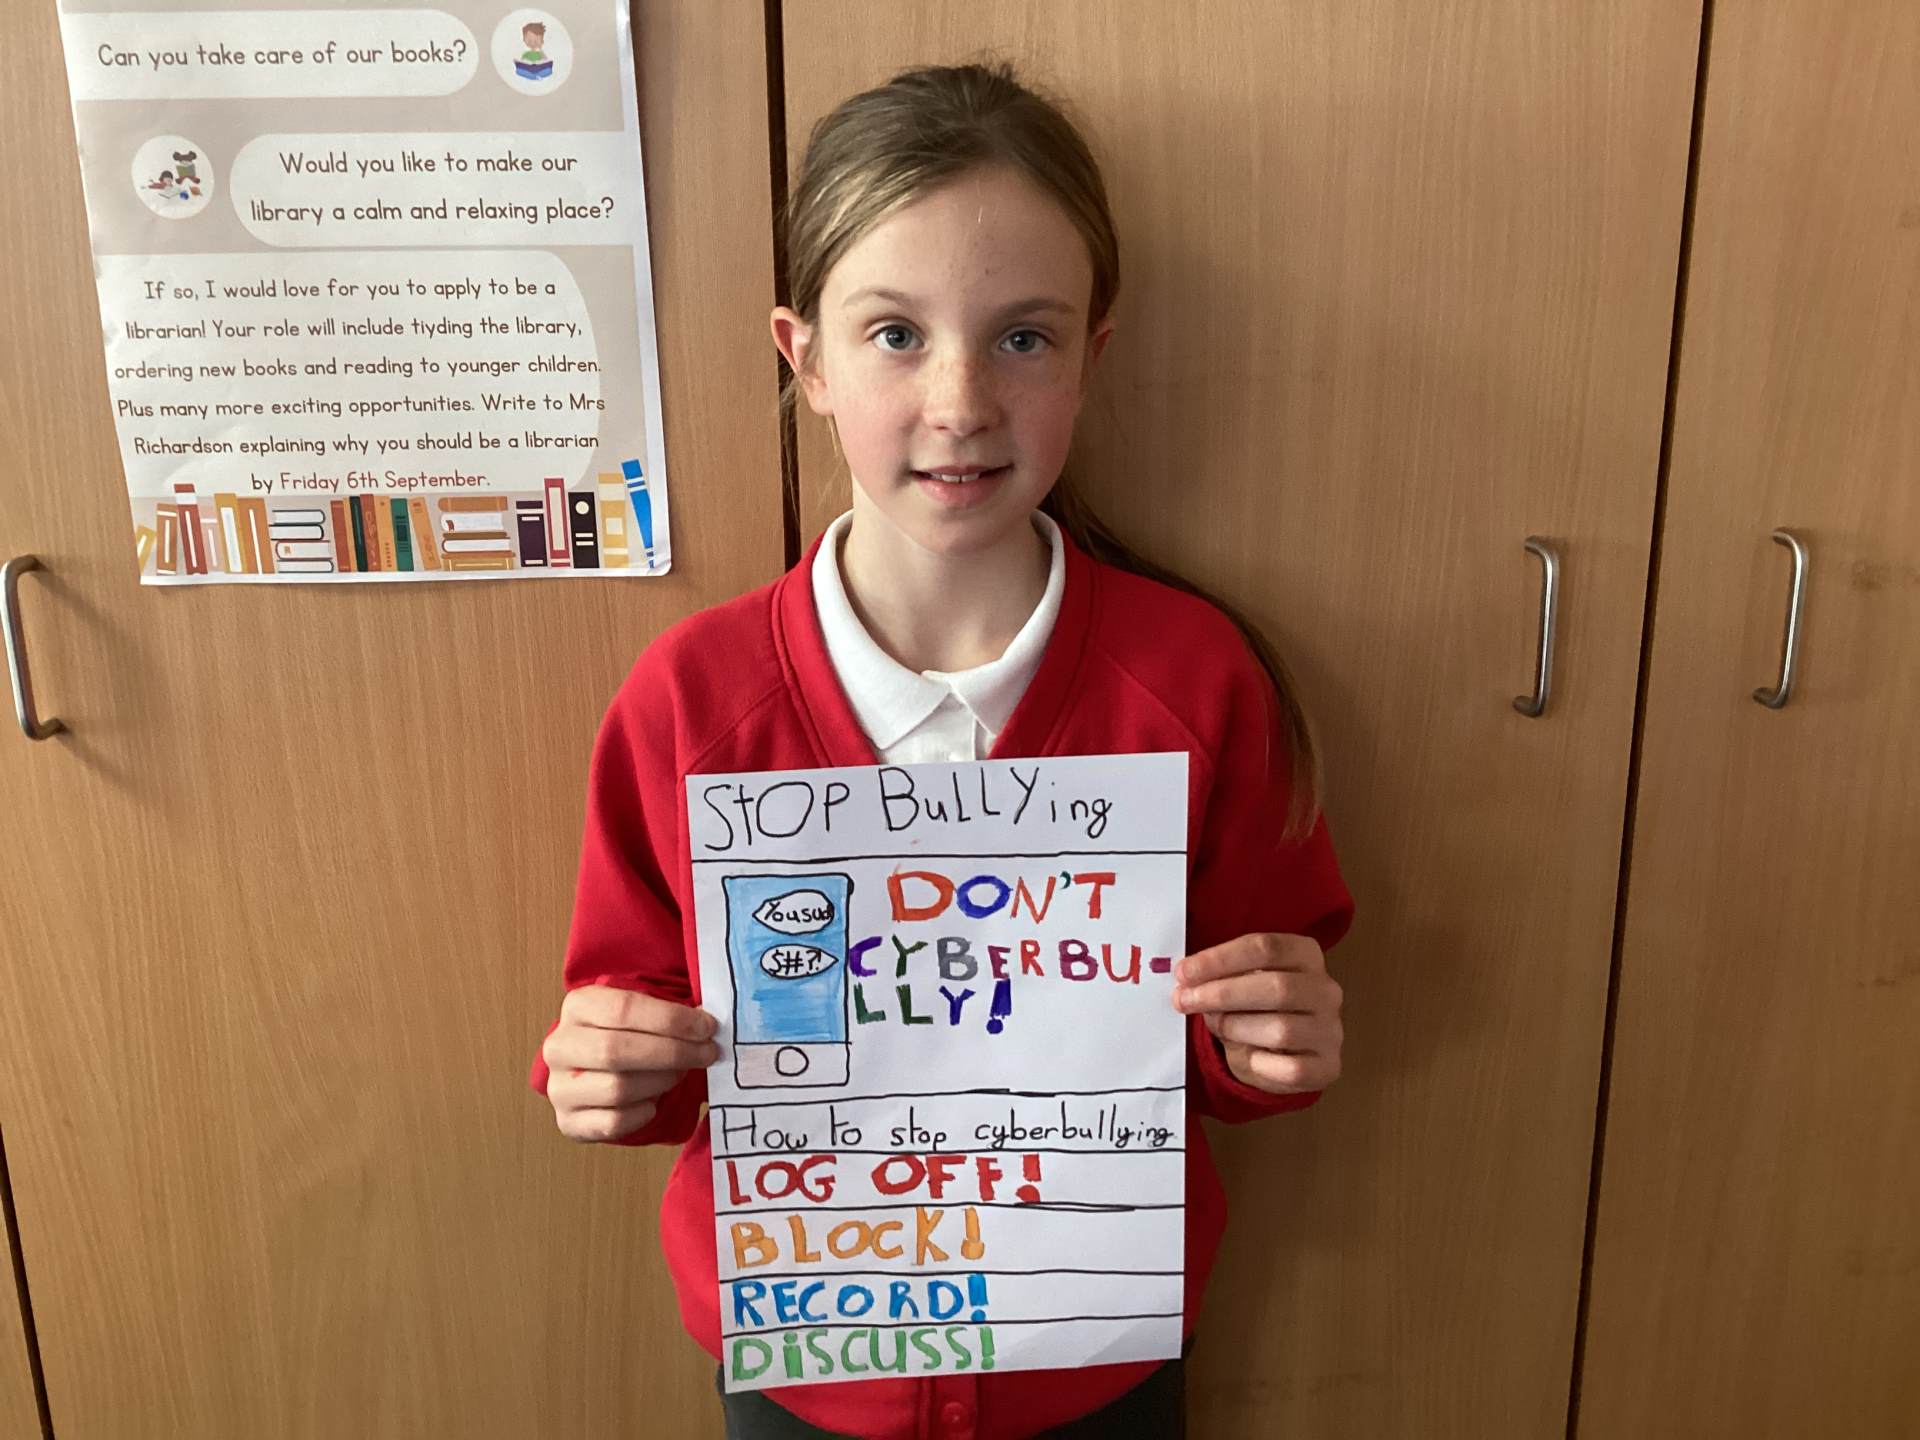 Can you take care of our books?
Would you like to make our
library a calm and relaxing place?
If so, I would love for you to apply to be a
librarian! Your role will include tiyding the library,
ordering new books and reading to younger children.
Plus many more exciting opportunities. Write to Mrs
Richardson explaining why you should be a librarian
by Friday 6th September.
StOP BuLLYing
You suck
$#?!
DON'T
CYBERBU-
LLY!
How to stop cyberbullying
LOG OFF!
BLOcK!
RECORD!
DiSCUSS!